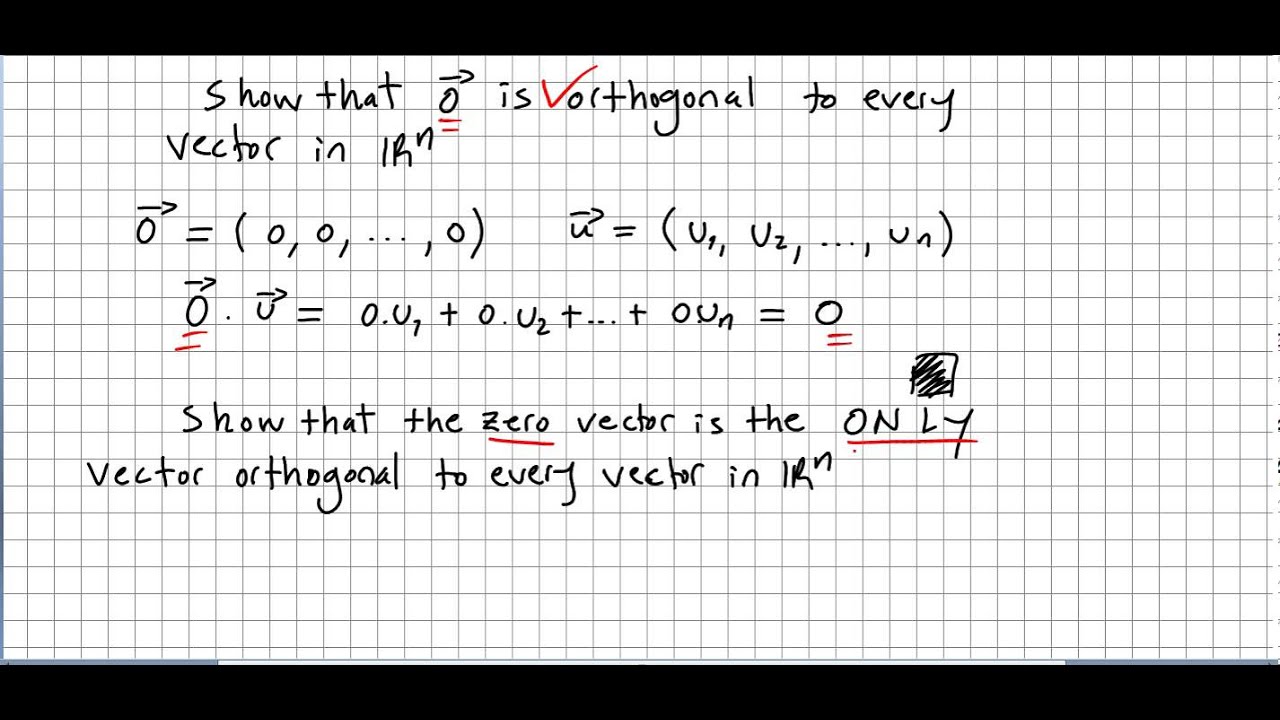 Show that 0⃗ is orthogonal to every
vector in ℝⁿ
0⃗ = (0, 0, ..., 0)  u⃗ = (u₁, u₂, ..., uₙ)
0⃗ . u⃗ = 0.u₁ + 0.u₂ + ... + 0.uₙ = 0
Show that the zero vector is the ONLY
vector orthogonal to every vector in ℝⁿ